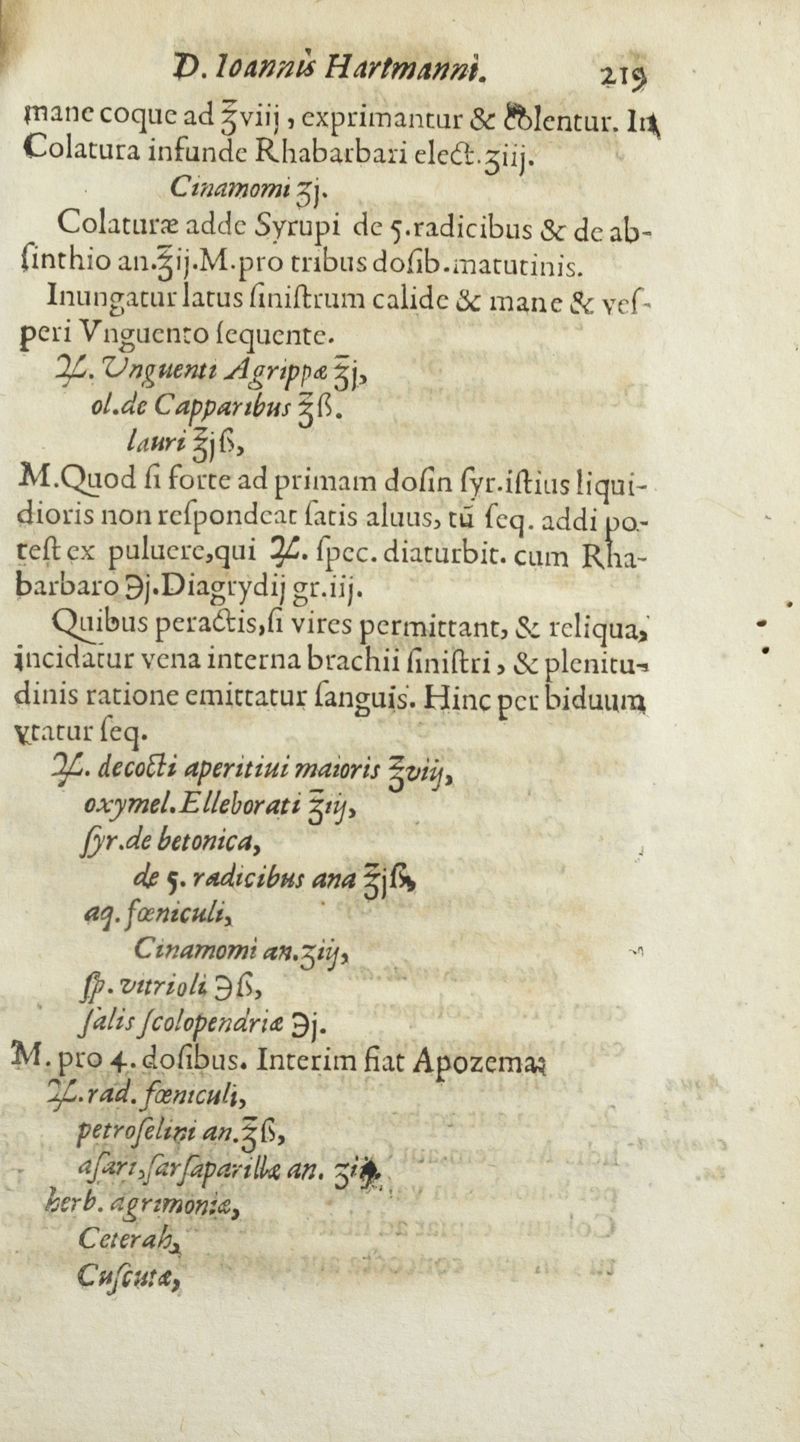 D. Ioannis Hartmanni. 219
mane coque ad ℥viij, exprimantur & colentur. In
Colatura infunde Rhabarbari elect.ʒiij.
Cinamomi ʒj.
Colaturæ adde Syrupi de 5.radicibus & de ab-
ſinthio an.℥ij.M.pro tribus doſib.matutinis.
Inungatur latus ſiniſtrum calide & mane & veſ-
peri Vnguento ſequente.
♃. Vnguenti Agrippæ ℥j,
ol.de Capparibus ℥ß.
lauri ℥jß,
M.Quod ſi forte ad primam doſin ſyr.iſtius liqui-
dioris non reſpondeat ſatis aluus, tū ſeq. addi po-
teſt ex puluere,qui ♃. ſpec. diaturbit. cum Rha-
barbaro ℈j.Diagrydij gr.iij.
Quibus peractis,ſi vires permittant, & reliqua,
incidatur vena interna brachii ſiniſtri, & plenitu-
dinis ratione emittatur ſanguis. Hinc per biduum
vtatur ſeq.
♃. decocti aperitiui maioris ℥viij,
oxymel.Elleborati ℥iij,
ſyr.de betonica,
de 5. radicibus ana ℥jß,
aq. fœniculi,
Cinamomi an.ʒiij,
ſp. vitrioli ℈ß,
ſalis ſcolopendriæ ℈j.
M. pro 4. doſibus. Interim fiat Apozema:
♃. rad. fœniculi,
petroſelini an.℥ß,
aſari,ſarſaparillæ an. ʒij.
herb. agrimoniæ,
Ceterah,
Cuſcutæ,